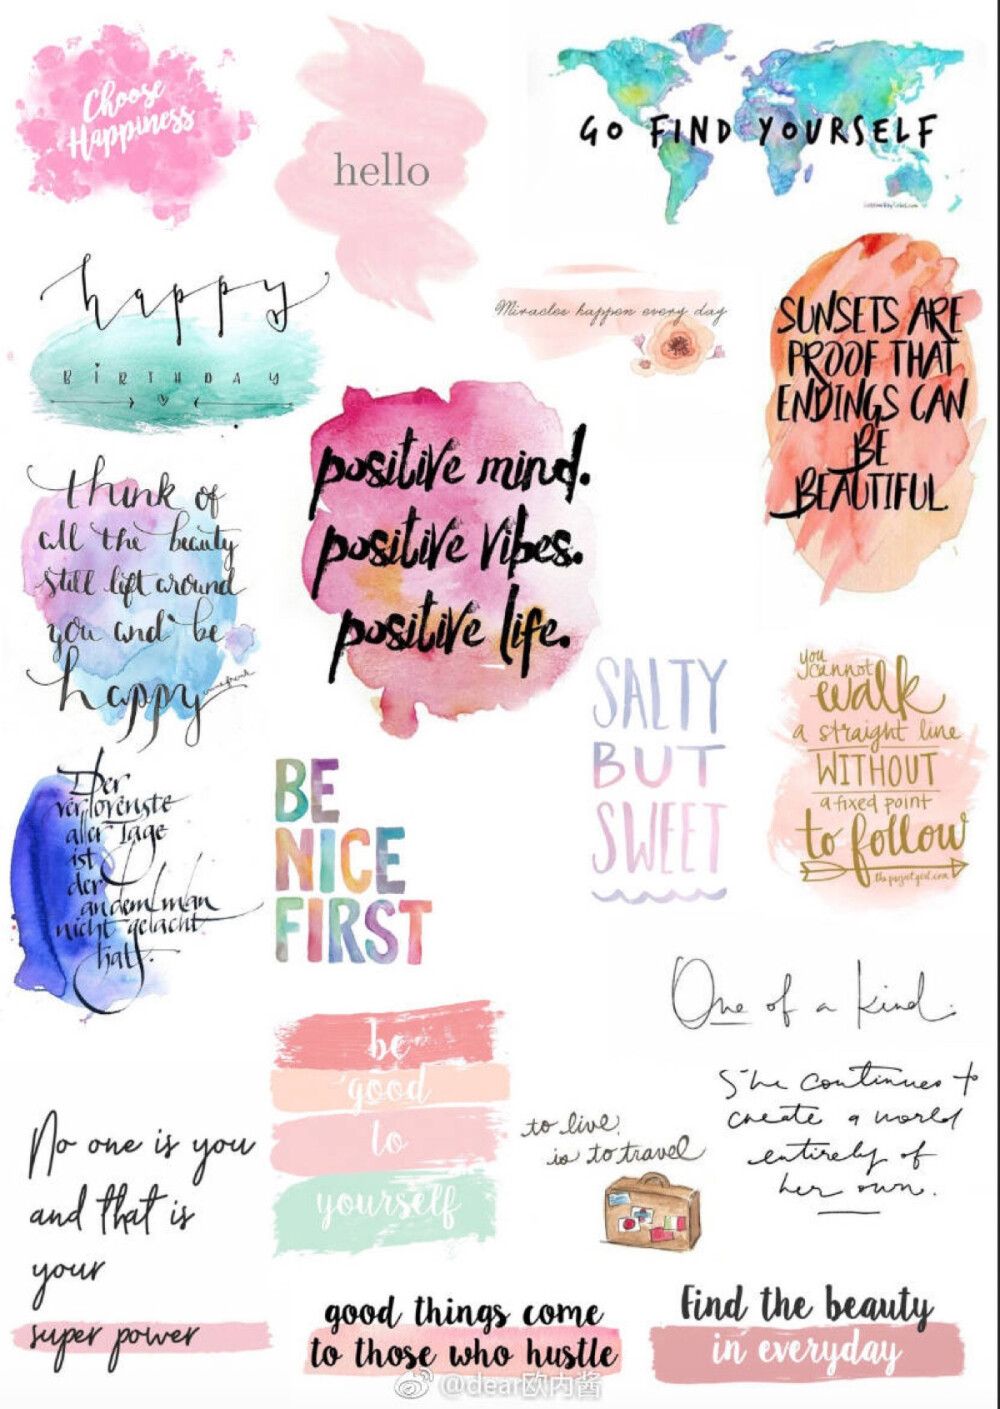 Choose
Happiness
hello
GO FIND YOURSELF
happy
BIRTHDAY
Miracles happen every day
SUNSETS ARE
PROOF THAT
ENDINGS CAN
BE
BEAUTIFUL
positive mind.
positive vibes.
positive life.
think of
all the beauty
still left around
you and be
happy
anne frank
SALTY
BUT
SWEET
you
cannot
walk
a straight line
WITHOUT
a fixed point
to follow
Der
verlorenste
aller Tage
ist
der
an dem man
nicht gelacht
hat.
BE
NICE
FIRST
One of a kind.
be
good
to
yourself
to live
is to travel
She continues to
create a world
entirely of
her own.
No one is you
and that is
your
super power
good things come
to those who hustle
Find the beauty
in everyday
@dear欧内酱